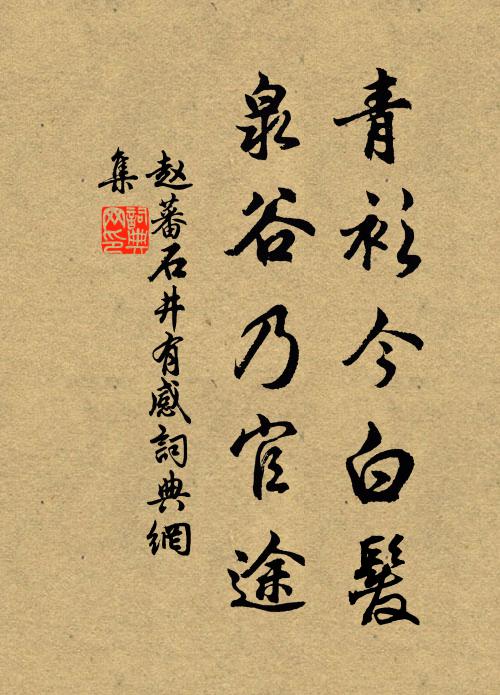 青衫今白髮
泉谷乃官途
赵蕃石井有感詞典網
集
詞典网印